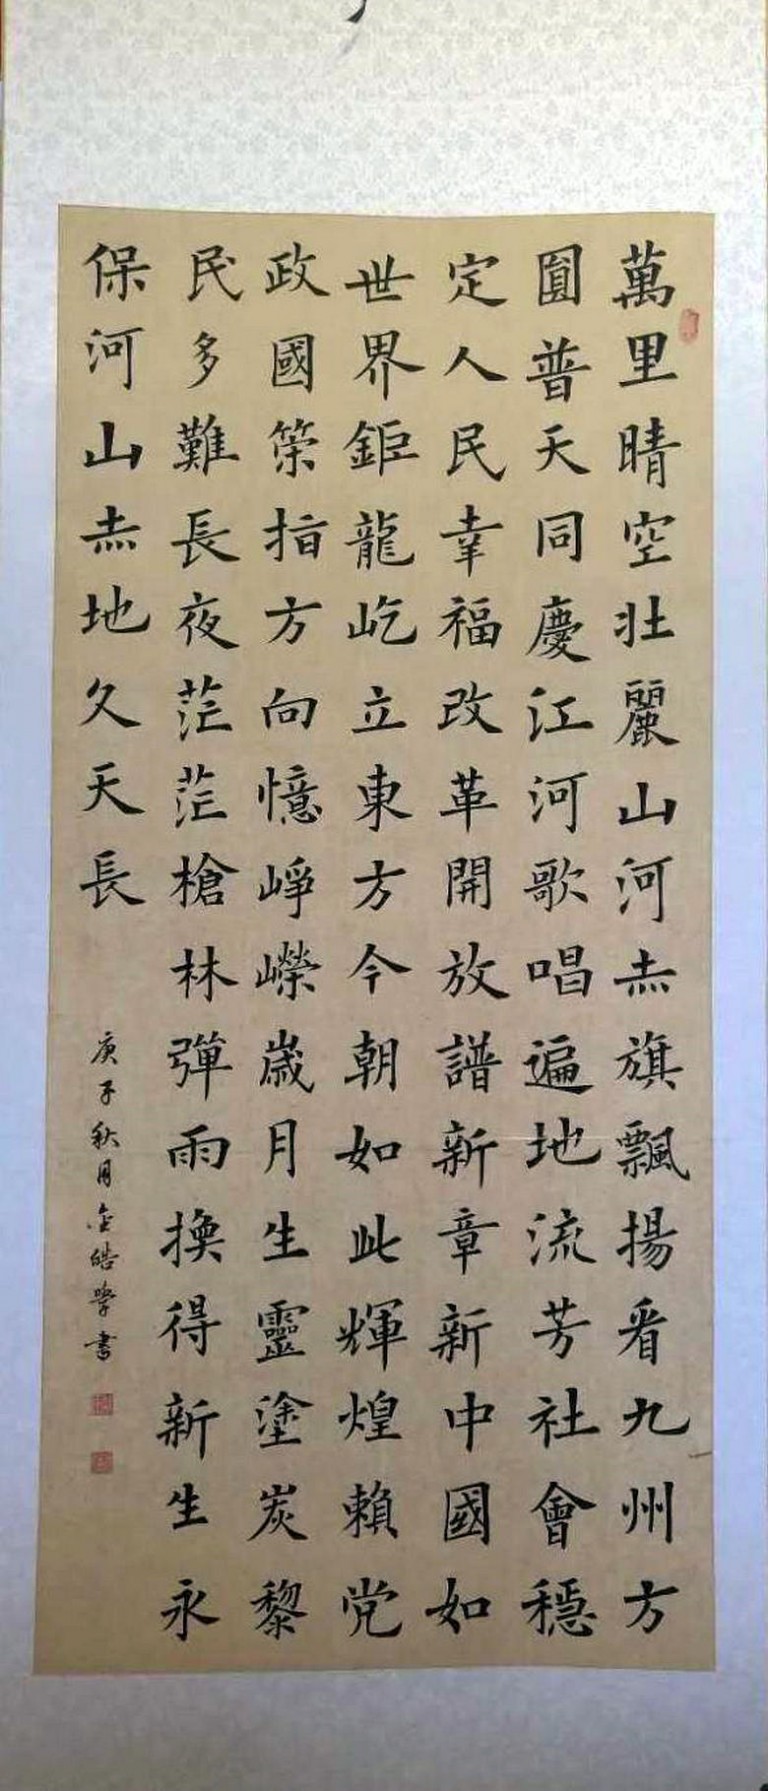 萬里晴空壯麗山河赤旗飄揚看九州方
圓普天同慶江河歌唱遍地流芳社會穩
定人民幸福改革開放譜新章新中國如
世界鉅龍屹立東方今朝如此輝煌賴党
政國策指方向憶崢嶸歲月生靈塗炭黎
民多難長夜茫茫槍林彈雨換得新生永
保河山赤地久天長
庚子秋月金皓學書